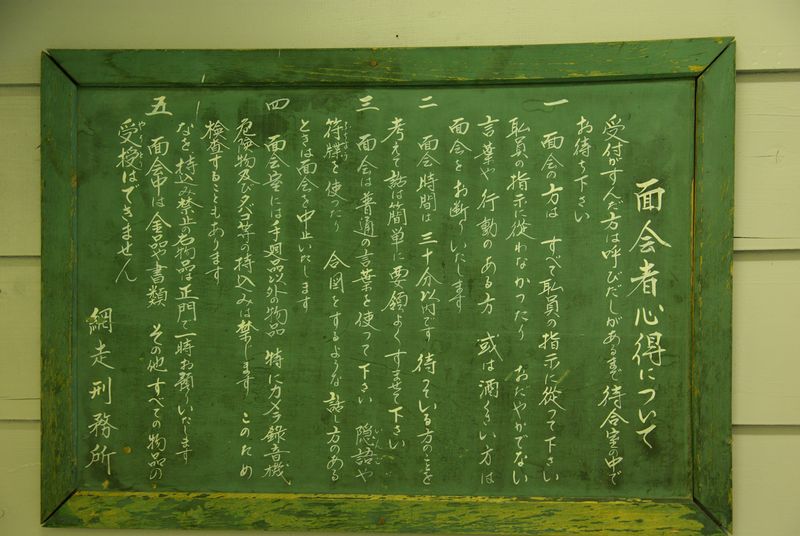 面会者心得について
受付がすんだ方は呼びだしがあるまで待合室の中で
お待ち下さい
一 面会の方は すべて職員の指示に従って下さい
職員の指示に従わなかったり おだやかでない
言葉や行動のある方 或は酒くさい方は
面会をお断りいたします
二 面会時間は三十分以内です 待っている方のことを
考えて話は簡単に要領よくすませて下さい
三 面会は普通の言葉を使って下さい 隠語や
符牒を使ったり 合図をするような話し方のある
ときは面会を中止いたします
四 面会室には手廻品以外の物品 特にカメラ録音機
危険物及びタバコ等の持込みは禁じます このため
検査することもあります
なを 持込み禁止の名物品は正門で一時お預りいたします
五 面会中は金品や書類 その他すべての物品の
受授はできません
網走刑務所